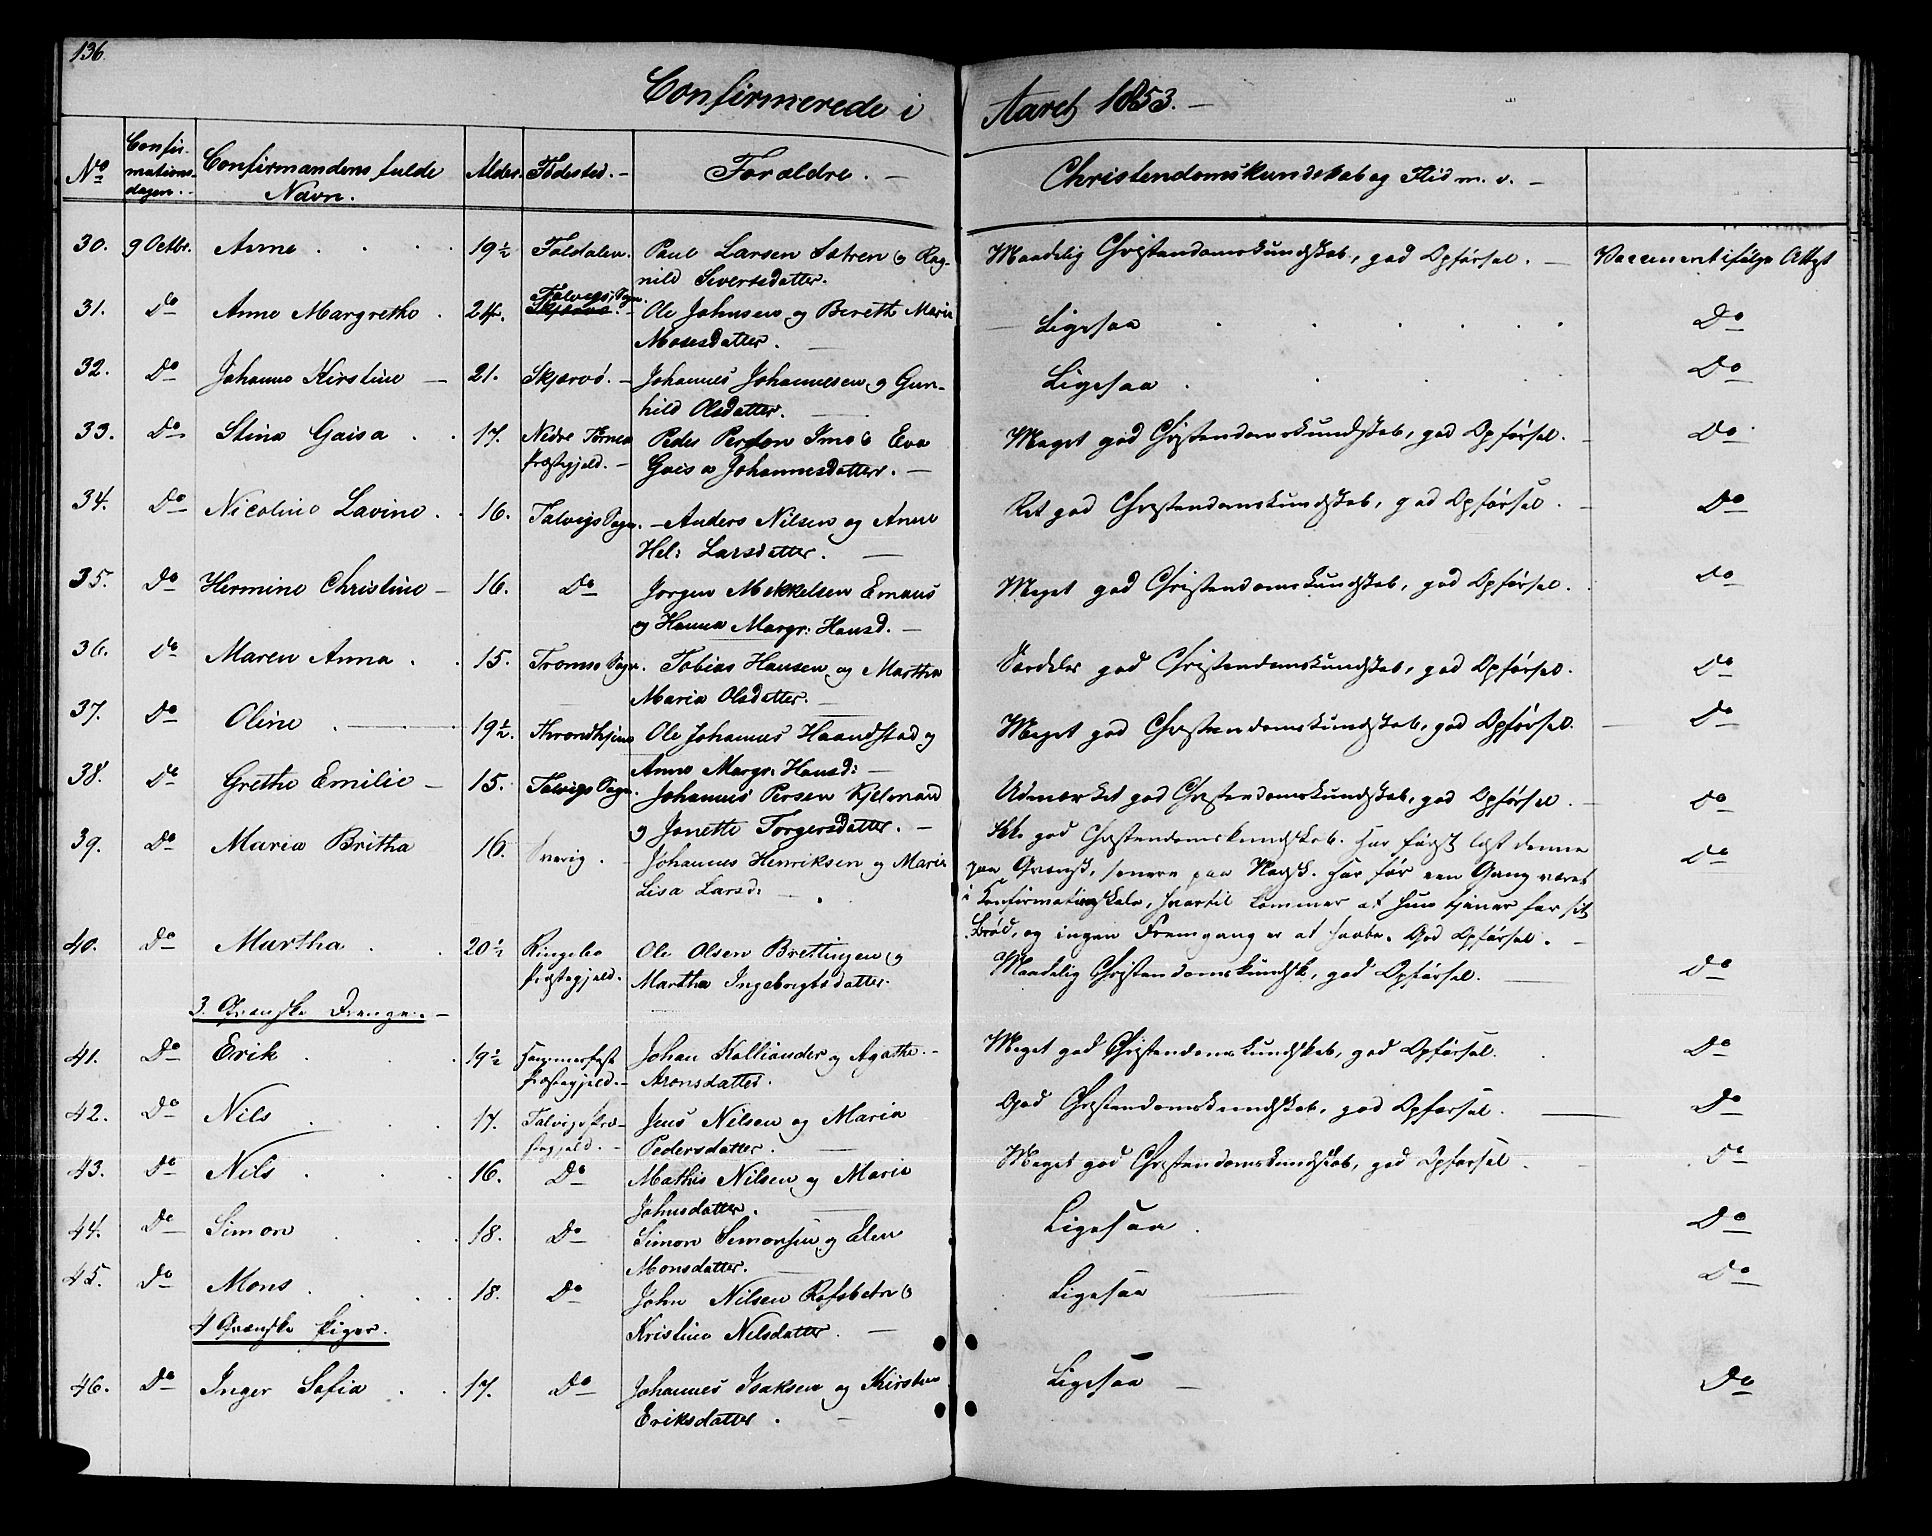 136.
Confirmerede i Aaret 1853. —
No Confirmationsdagen. Confirmandens fulde Navn. Alder. Fødested. — Forældre. — Christendomskundskab og Flid m. v. —
30. 9 Octbr. Anne 19½ Foldalen. Paul Larsen Sætren og Ragnild Siversdatter. Maadelig Christendomskundskab, god Opførsel. — Vaccineret ifølge Attest
31. Do Anne Margrethe 24. Talvigs Sogn. Ole Johnsen og Bereth Maria Mosesdatter. — Ligesaa Do
32. Do Johanne Kirstine — 21. Skjærvø. — Johannes Johannesen og Gunhild Olsdatter. — Ligesaa Do
33. Do Stina Gaisa 17. Nedre Torneå Præstegjeld. — Peder Person Imo og Eva Gaisa Johannesdatter. — Meget god Christendomskundskab, god Opførsel. — Do
34. Do Nicoline Lavine 16. Talvigs Sogn. — Anders Nilsen og Anne Hel: Larsdatter. — Ret god Christendomskundskab, god Opførsel. — Do
35. Do Hermine Christine — 16. Do Jørgen Mekkelsen Emaus og Hanna Margr: Hansd. — Meget god Christendomskundskab, god Opførsel. Do
36. Do Maren Anna 15. Tromsø Sogn. Tobias Hansen og Martha Maria Olsdatter. — Særdeles god Christendomskundskab, god Opførsel. Do
37. Do Oline 19½. Throndhjem Ole Johannes Haandstad og Anne Margr: Hansd: — Meget god Christendomskundskab, god Opførsel. — Do
38. Do Grethe Emilie — 15. Talvigs Sogn. Johannes Persen Kjelmand og Janette Torgersdatter. — Udmærket god Christendomskundskab, god Opførsel. — Do
39. Do Maria Britha 16. Sverig. — Johannes Henriksen og Maria Lisa Larsd: — Ikke god Christendomskundskab. Har først læst denne
paa Qvænsk, senere paa Norsk. Har før een Gang været
i Confirmationsskole, hvortil kommer at hun tjener for sit
Brød, og ingen Fremgang er at haabe. God Opførsel. — Do
40. Do Martha 20½ Ringebo Præstegjeld. Ole Olsen Brettingen og Martha Ingebrigtsdatter. Maadelig Christendomskundsk, god Opførsel. — Do
3. Qvænske Drenge. —
41. Do Erik 19½ Hammerfest Præstegjeld. — Johan Kalliander og Agathe Aronsdatter. Meget god Christendomskundskab, god Opførsel. Do
42. Do Nils 17. Talvigs Præstegjeld. — Jens Nilsen og Maria Pedersdatter. — God Christendomskundskab, god Opførsel. — Do
43. Do Nils 16. Do Mathis Nilsen og Marie Johnsdatter. — Meget god Christendomskundskab, god Opførsel. Do
44. Do Simon 18. Do Simon Simonsen og Elen Monsdatter. — Ligesaa Do
45. Do Mons 18. Do John Nilsen Rafsbotn og Kristine Nilsdatter. — Ligesaa Do
4 Qvænske Piger.
46. Do Inger Sofia 17. Do Johannes Isaksen og Kirsten Eriksdatter. — Ligesaa — Do